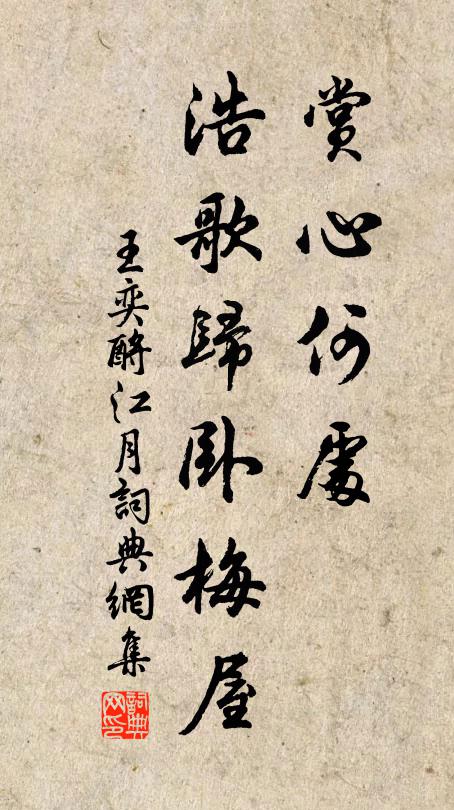 賞心何處
浩歌歸卧梅屋
王奕酹江月詞典網集
詞典网印